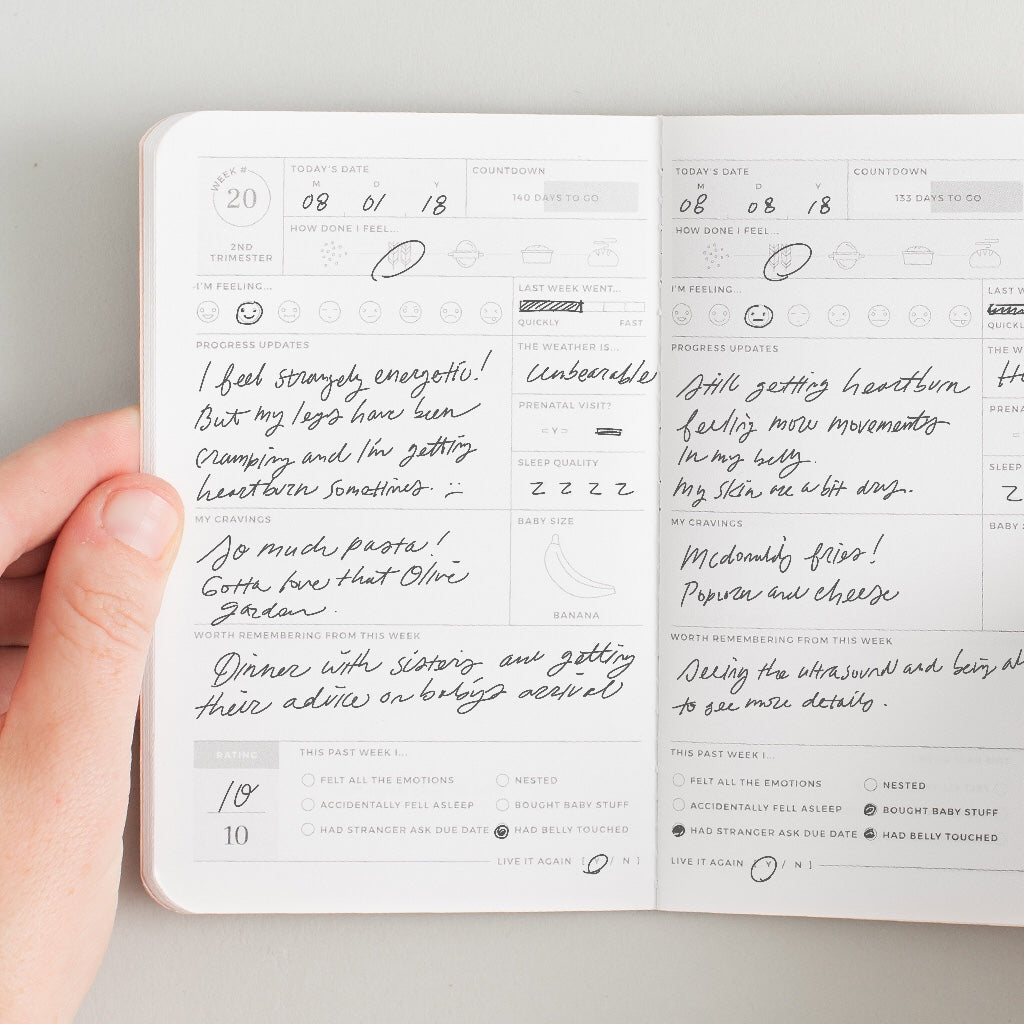 WEEK #
20
2ND
TRIMESTER
TODAY'S DATE
M D Y
08 01 18
COUNTDOWN
140 DAYS TO GO
HOW DONE I FEEL...
I'M FEELING...
LAST WEEK WENT...
QUICKLY FAST
PROGRESS UPDATES
I feel strangely energetic!
But my legs have been
cramping and I'm getting
heartburn sometimes. :(
THE WEATHER IS...
Unbearable
PRENATAL VISIT?
Y
SLEEP QUALITY
Z Z Z Z
MY CRAVINGS
So much pasta!
Gotta love that Olive
garden.
BABY SIZE
BANANA
WORTH REMEMBERING FROM THIS WEEK
Dinner with sisters and getting
their advice on baby's arrival
RATING
10
10
THIS PAST WEEK I...
FELT ALL THE EMOTIONS
NESTED
ACCIDENTALLY FELL ASLEEP
BOUGHT BABY STUFF
HAD STRANGER ASK DUE DATE
HAD BELLY TOUCHED
LIVE IT AGAIN [ Y / N ]
TODAY'S DATE
M D Y
08 08 18
COUNTDOWN
133 DAYS TO GO
HOW DONE I FEEL...
I'M FEELING...
LAST W
QUICKL
PROGRESS UPDATES
Still getting heartburn
feeling more movements
in my belly.
My skin are a bit dry.
THE W
PRENA
SLEEP
Z
MY CRAVINGS
Mcdonald's fries!
Popcorn and cheese
BABY S
WORTH REMEMBERING FROM THIS WEEK
Seeing the ultrasound and being ab
to see more details.
THIS PAST WEEK I...
FELT ALL THE EMOTIONS
NESTED
ACCIDENTALLY FELL ASLEEP
BOUGHT BABY STUFF
HAD STRANGER ASK DUE DATE
HAD BELLY TOUCHED
LIVE IT AGAIN [ Y / N ]